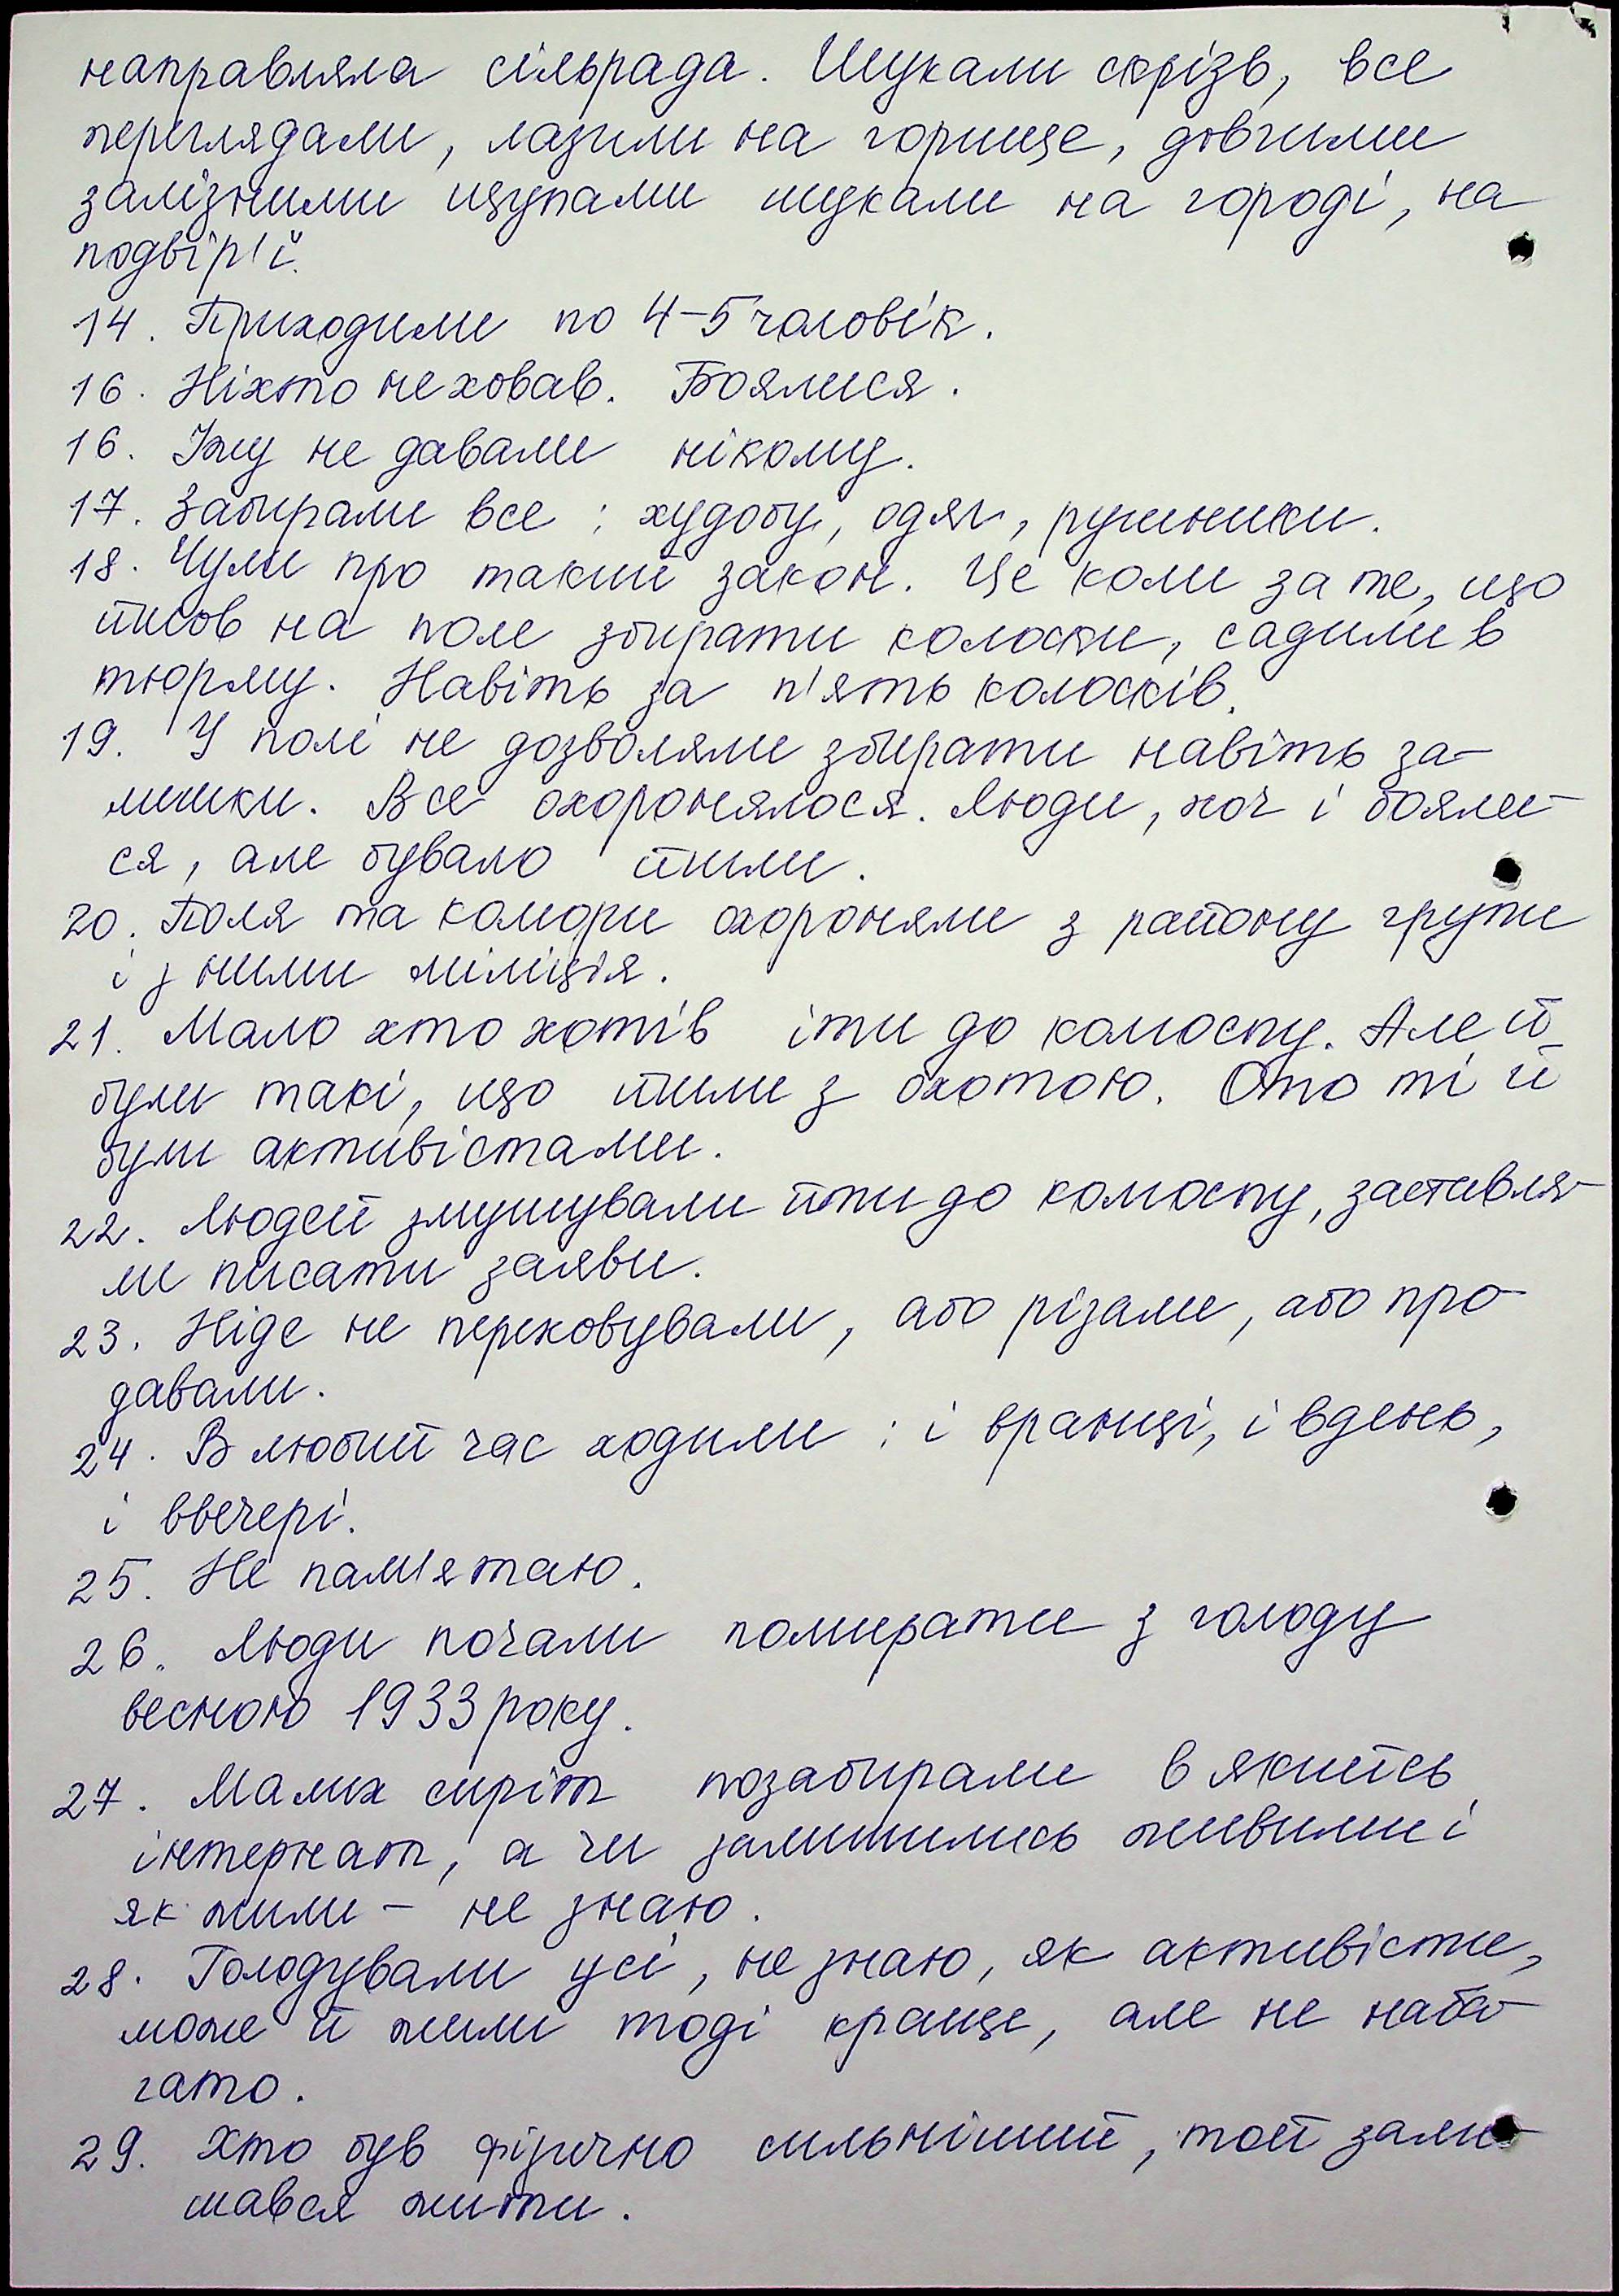 направляла сільрада. Шукали скрізь, все
переглядали, лазили на горище, довгими
залізними щупами шукали на городі, на
подвір'ї.
14. Приходили по 4-5 чоловік.
16. Ніхто не ховав. Боялися.
16. Їжу не давали нікому.
17. Забирали все: худобу, одяг, рушники.
18. Чули про такий закон. Це коли за те, що
йшов на поле збирати колоски, садили в
тюрму. Навіть за п'ять колосків.
19. У полі не дозволяли збирати навіть за-
лишки. Все охоронялося. Люди, хоч і бояли-
ся, але бувало йшли.
20. Поля та комори охороняли з району групи
і з ними міліція.
21. Мало хто хотів іти до колоспу. Але й
були такі, що йшли з охотою. Ото ті й
були активістами.
22. Людей змушували йти до колоспу, заставля-
ли писати заяви.
23. Ніде не переховували, або різали, або про-
давали.
24. В любий час ходили: і вранці, і вдень,
і ввечері.
25. Не пам'ятаю.
26. Люди почали помирати з голоду
весною 1933 року.
27. Малих сиріт позабирали в якийсь
інтернат, а чи залишились живими і
як жили - не знаю.
28. Голодували усі, не знаю, як активісти,
може й жили тоді краще, але не наба-
гато.
29. Хто був фізично сильніший, той зали-
шався жити.